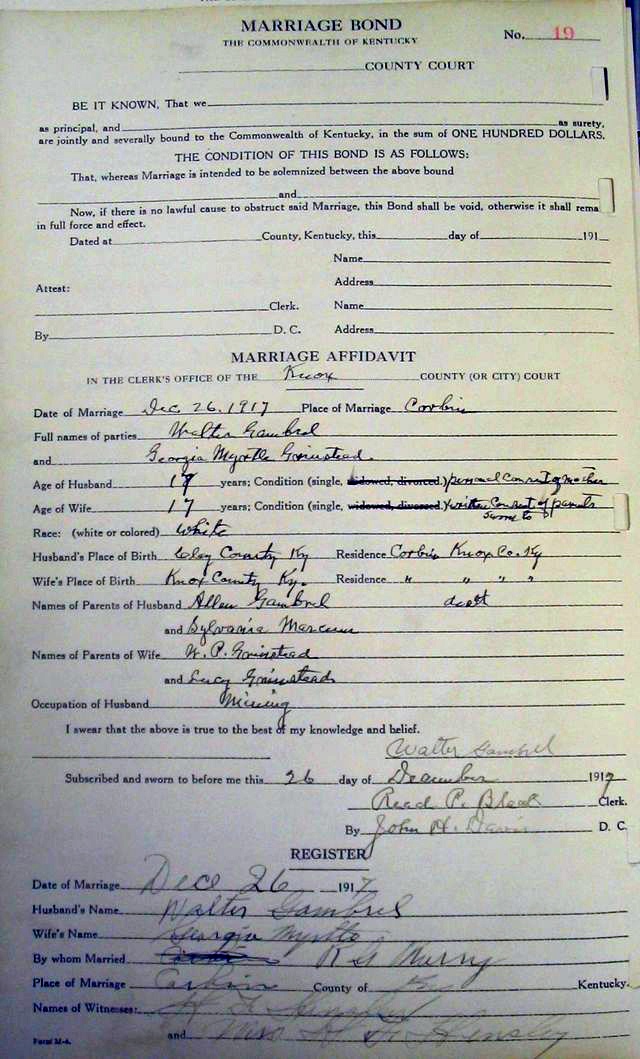 MARRIAGE BOND
No. 19
THE COMMONWEALTH OF KENTUCKY
COUNTY COURT
BE IT KNOWN, That we
as principal, and as surety,
are jointly and severally bound to the Commonwealth of Kentucky, in the sum of ONE HUNDRED DOLLARS.
THE CONDITION OF THIS BOND IS AS FOLLOWS:
That, whereas Marriage is intended to be solemnized between the above bound
and
Now, if there is no lawful cause to obstruct said Marriage, this Bond shall be void, otherwise it shall rema
in full force and effect.
Dated at County, Kentucky, this day of 191
Name
Address
Attest:
Clerk. Name
By D. C. Address
MARRIAGE AFFIDAVIT
IN THE CLERK'S OFFICE OF THE Knox COUNTY (OR CITY) COURT
Date of Marriage Dec. 26, 1917 Place of Marriage Corbin
Full names of parties Walter Gambrel
and Georgia Myrtle Grinstead
Age of Husband 19 years; Condition (single, widowed, divorced.) personal consent of mother
Age of Wife 17 years; Condition (single, widowed, divorced.) written consent of parents
sworn to
Race: (white or colored) White
Husband's Place of Birth Clay County Ky Residence Corbin Knox Co. Ky
Wife's Place of Birth Knox County Ky. Residence " " " "
Names of Parents of Husband Allen Gambrel
and Sylvania Marcum
Names of Parents of Wife W. P. Grinstead
and Lucy Grinstead
Occupation of Husband Mining
I swear that the above is true to the best of my knowledge and belief.
Walter Gambrel
Subscribed and sworn to before me this 26 day of December 1917
Read P. Black Clerk.
By John H. Davis D. C.
REGISTER
Date of Marriage Dec 26 1917
Husband's Name Walter Gambrel
Wife's Name Georgia Myrtle
By whom Married R G Murry
Place of Marriage Corbin County of Kentucky.
Names of Witnesses:
and Hensley
Form M-4.